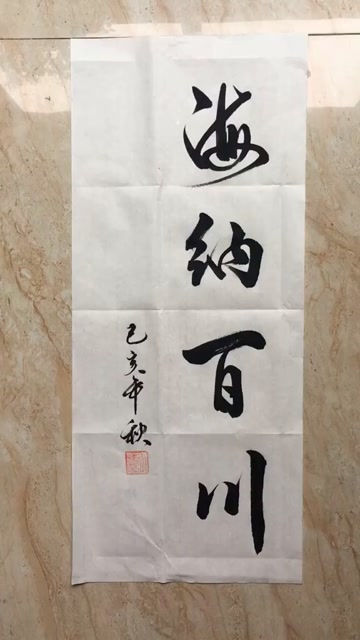 海纳百川
己亥年秋